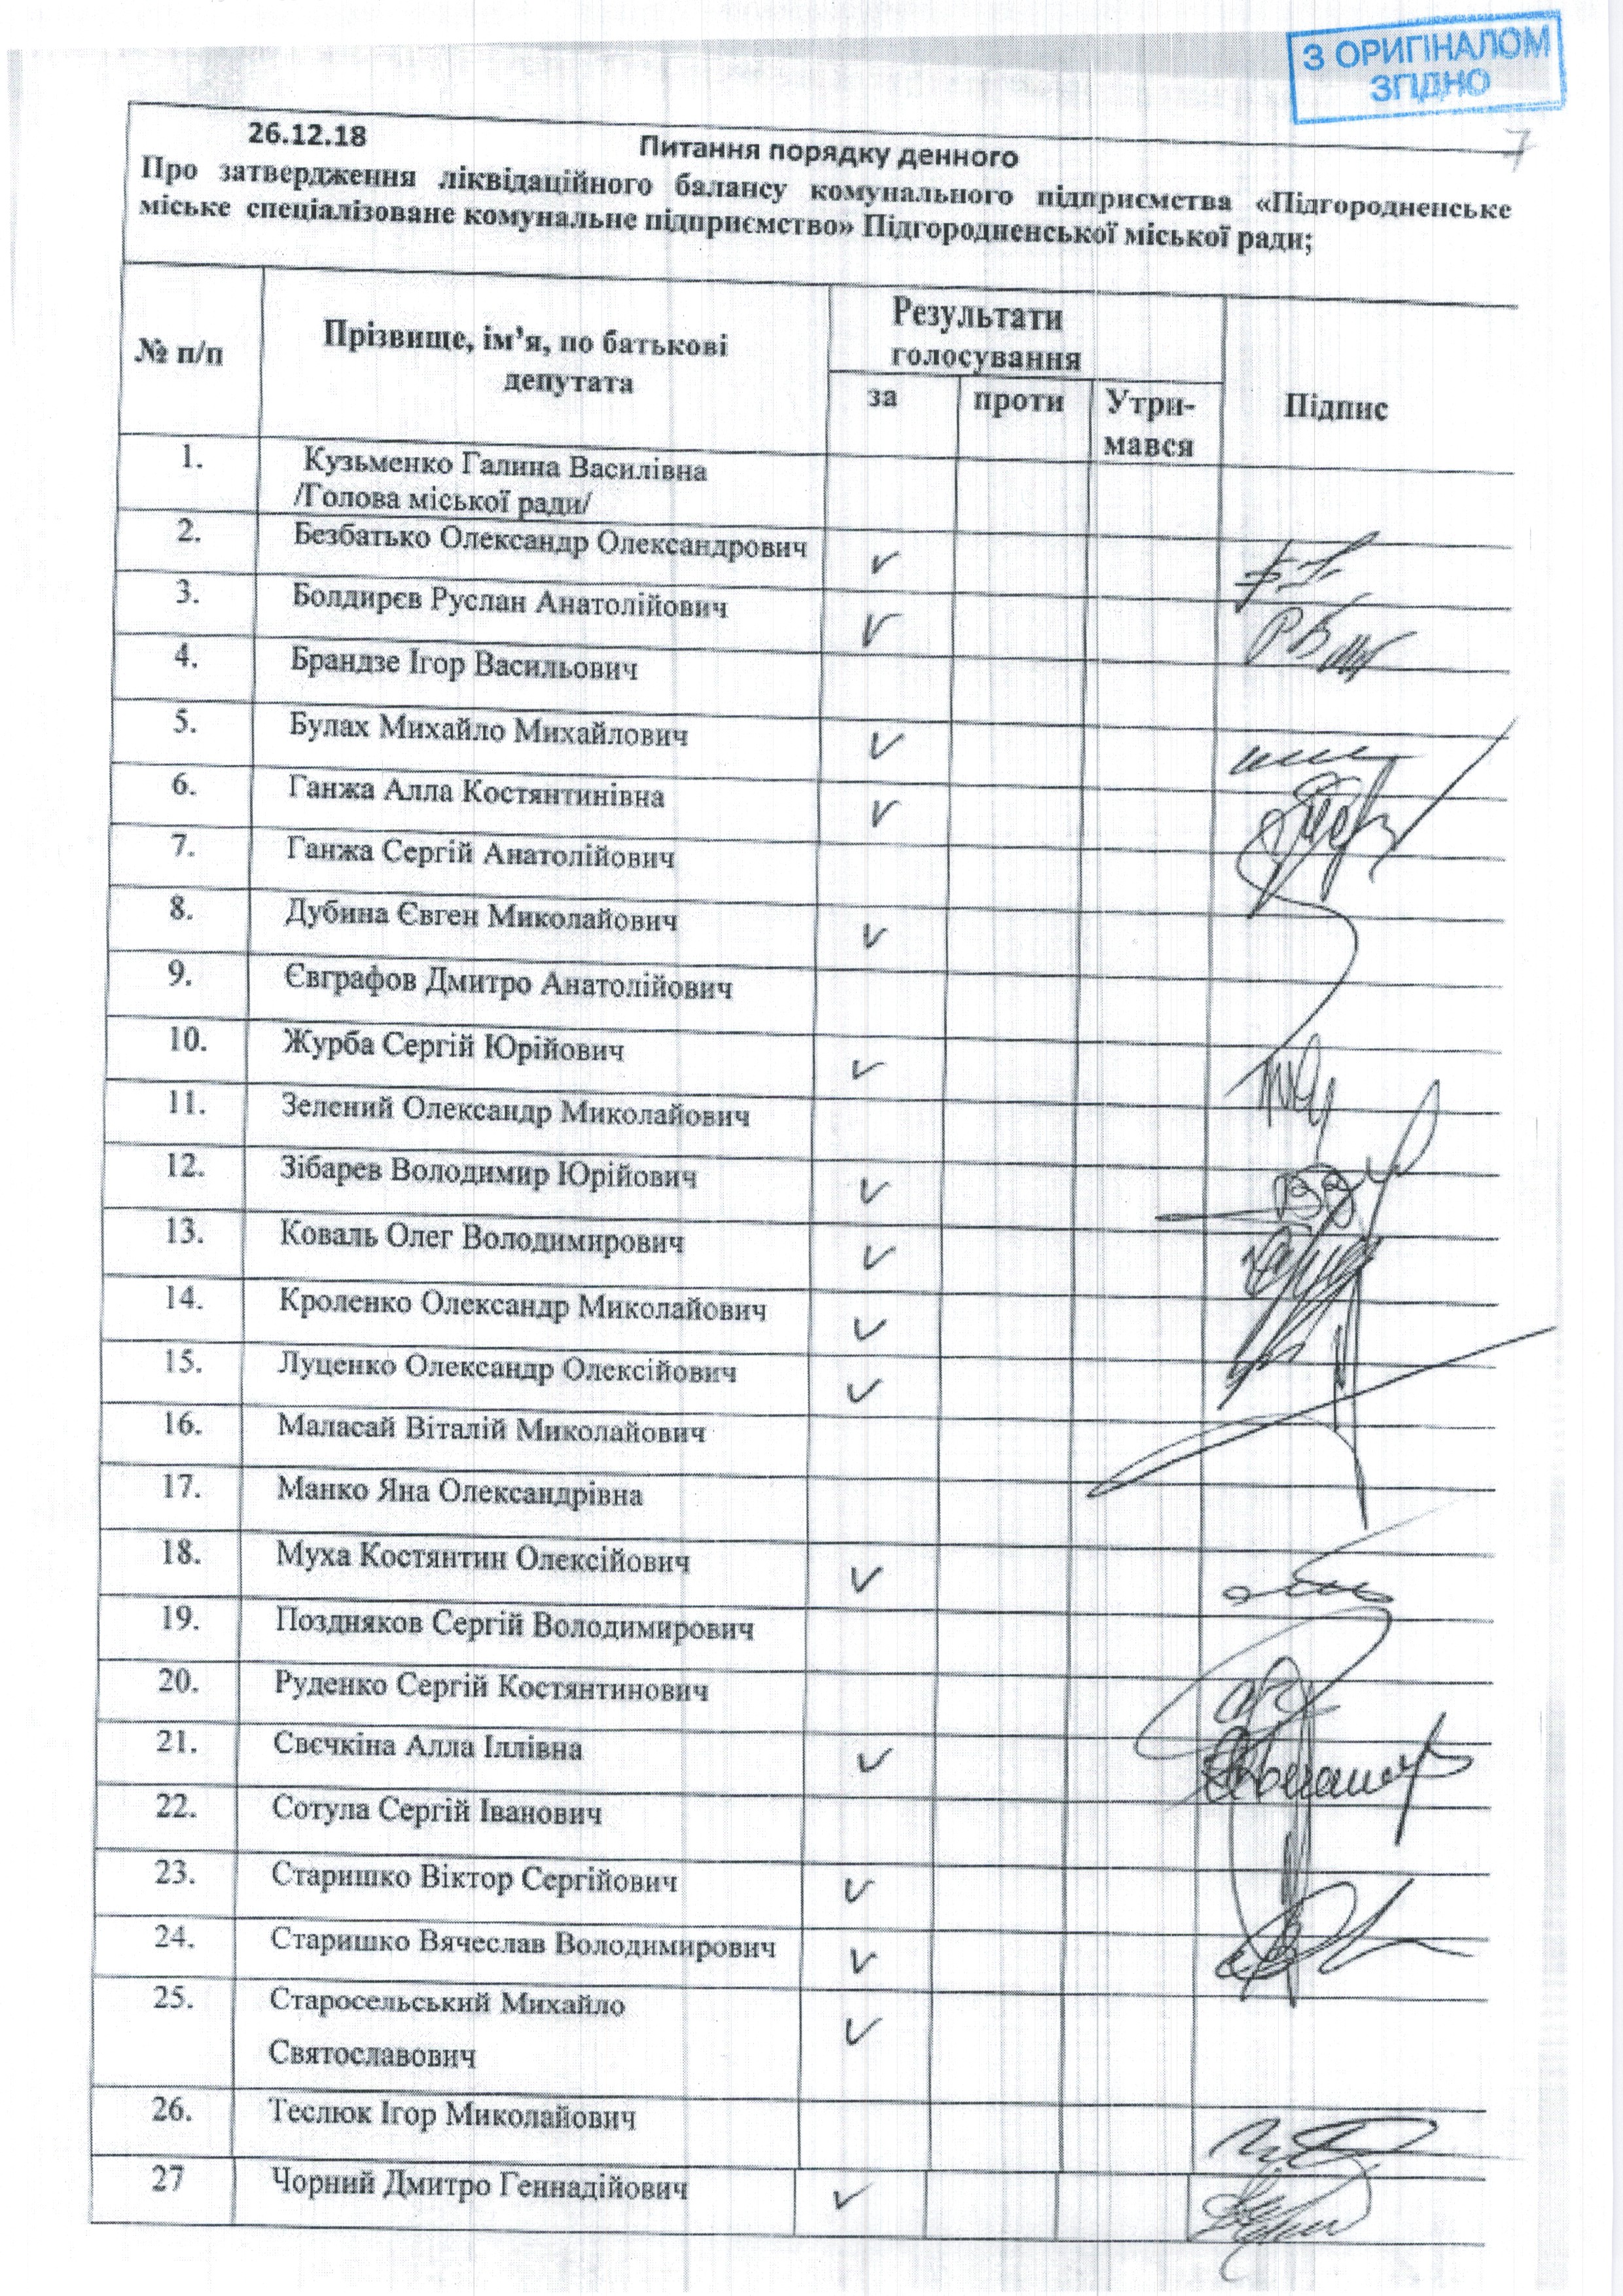 З ОРИГІНАЛОМ
ЗГІДНО
7
26.12.18 Питання порядку денного
Про затвердження ліквідаційного балансу комунального підприємства «Підгородненське
міське спеціалізоване комунальне підприємство» Підгородненської міської ради;
№ п/п
Прізвище, ім’я, по батькові
депутата
Результати
голосування
за проти Утри-
мався
Підпис
1. Кузьменко Галина Василівна
/Голова міської ради/
2. Безбатько Олександр Олександрович ✓
3. Болдирєв Руслан Анатолійович ✓
4. Брандзе Ігор Васильович
5. Булах Михайло Михайлович ✓
6. Ганжа Алла Костянтинівна ✓
7. Ганжа Сергій Анатолійович
8. Дубина Євген Миколайович ✓
9. Євграфов Дмитро Анатолійович
10. Журба Сергій Юрійович ✓
11. Зелений Олександр Миколайович
12. Зібарев Володимир Юрійович ✓
13. Коваль Олег Володимирович ✓
14. Кроленко Олександр Миколайович ✓
15. Луценко Олександр Олексійович ✓
16. Маласай Віталій Миколайович
17. Манко Яна Олександрівна
18. Муха Костянтин Олексійович ✓
19. Поздняков Сергій Володимирович
20. Руденко Сергій Костянтинович
21. Свєчкіна Алла Іллівна ✓
22. Сотула Сергій Іванович
23. Старишко Віктор Сергійович ✓
24. Старишко Вячеслав Володимирович ✓
25. Старосельський Михайло ✓
Святославович
26. Теслюк Ігор Миколайович
27 Чорний Дмитро Геннадійович ✓